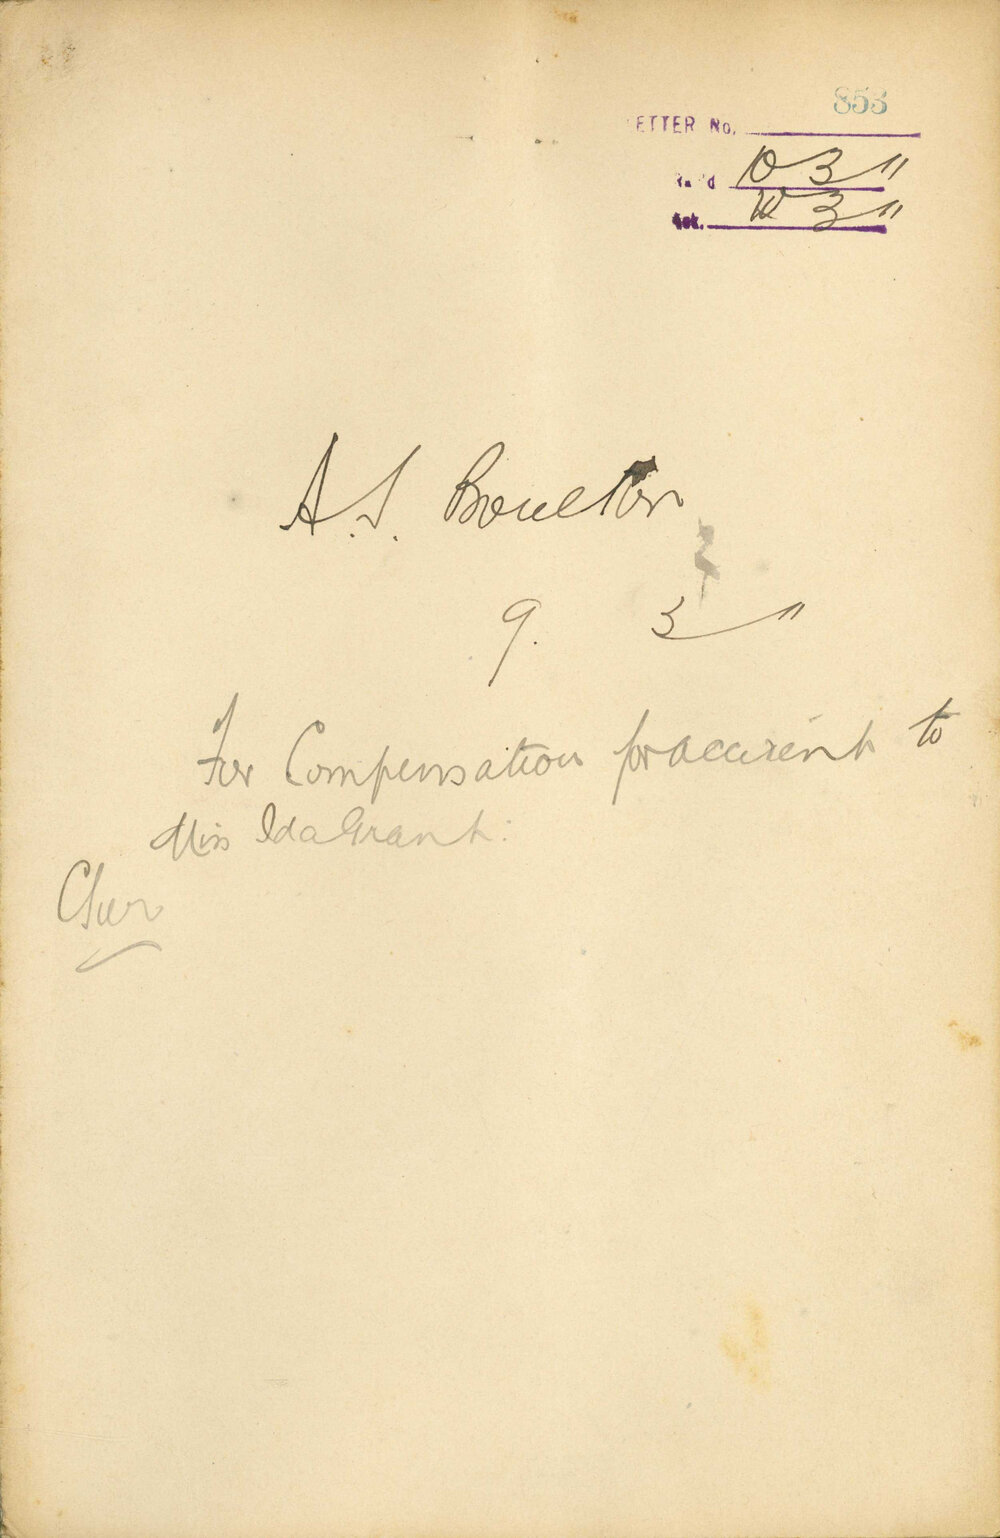 853
LETTER No.
Rec'd 10 3 11
Ack. 10 3 11
A. S. Boulton
9. 3 11
For Compensation for accident to
Miss Ida Grant.